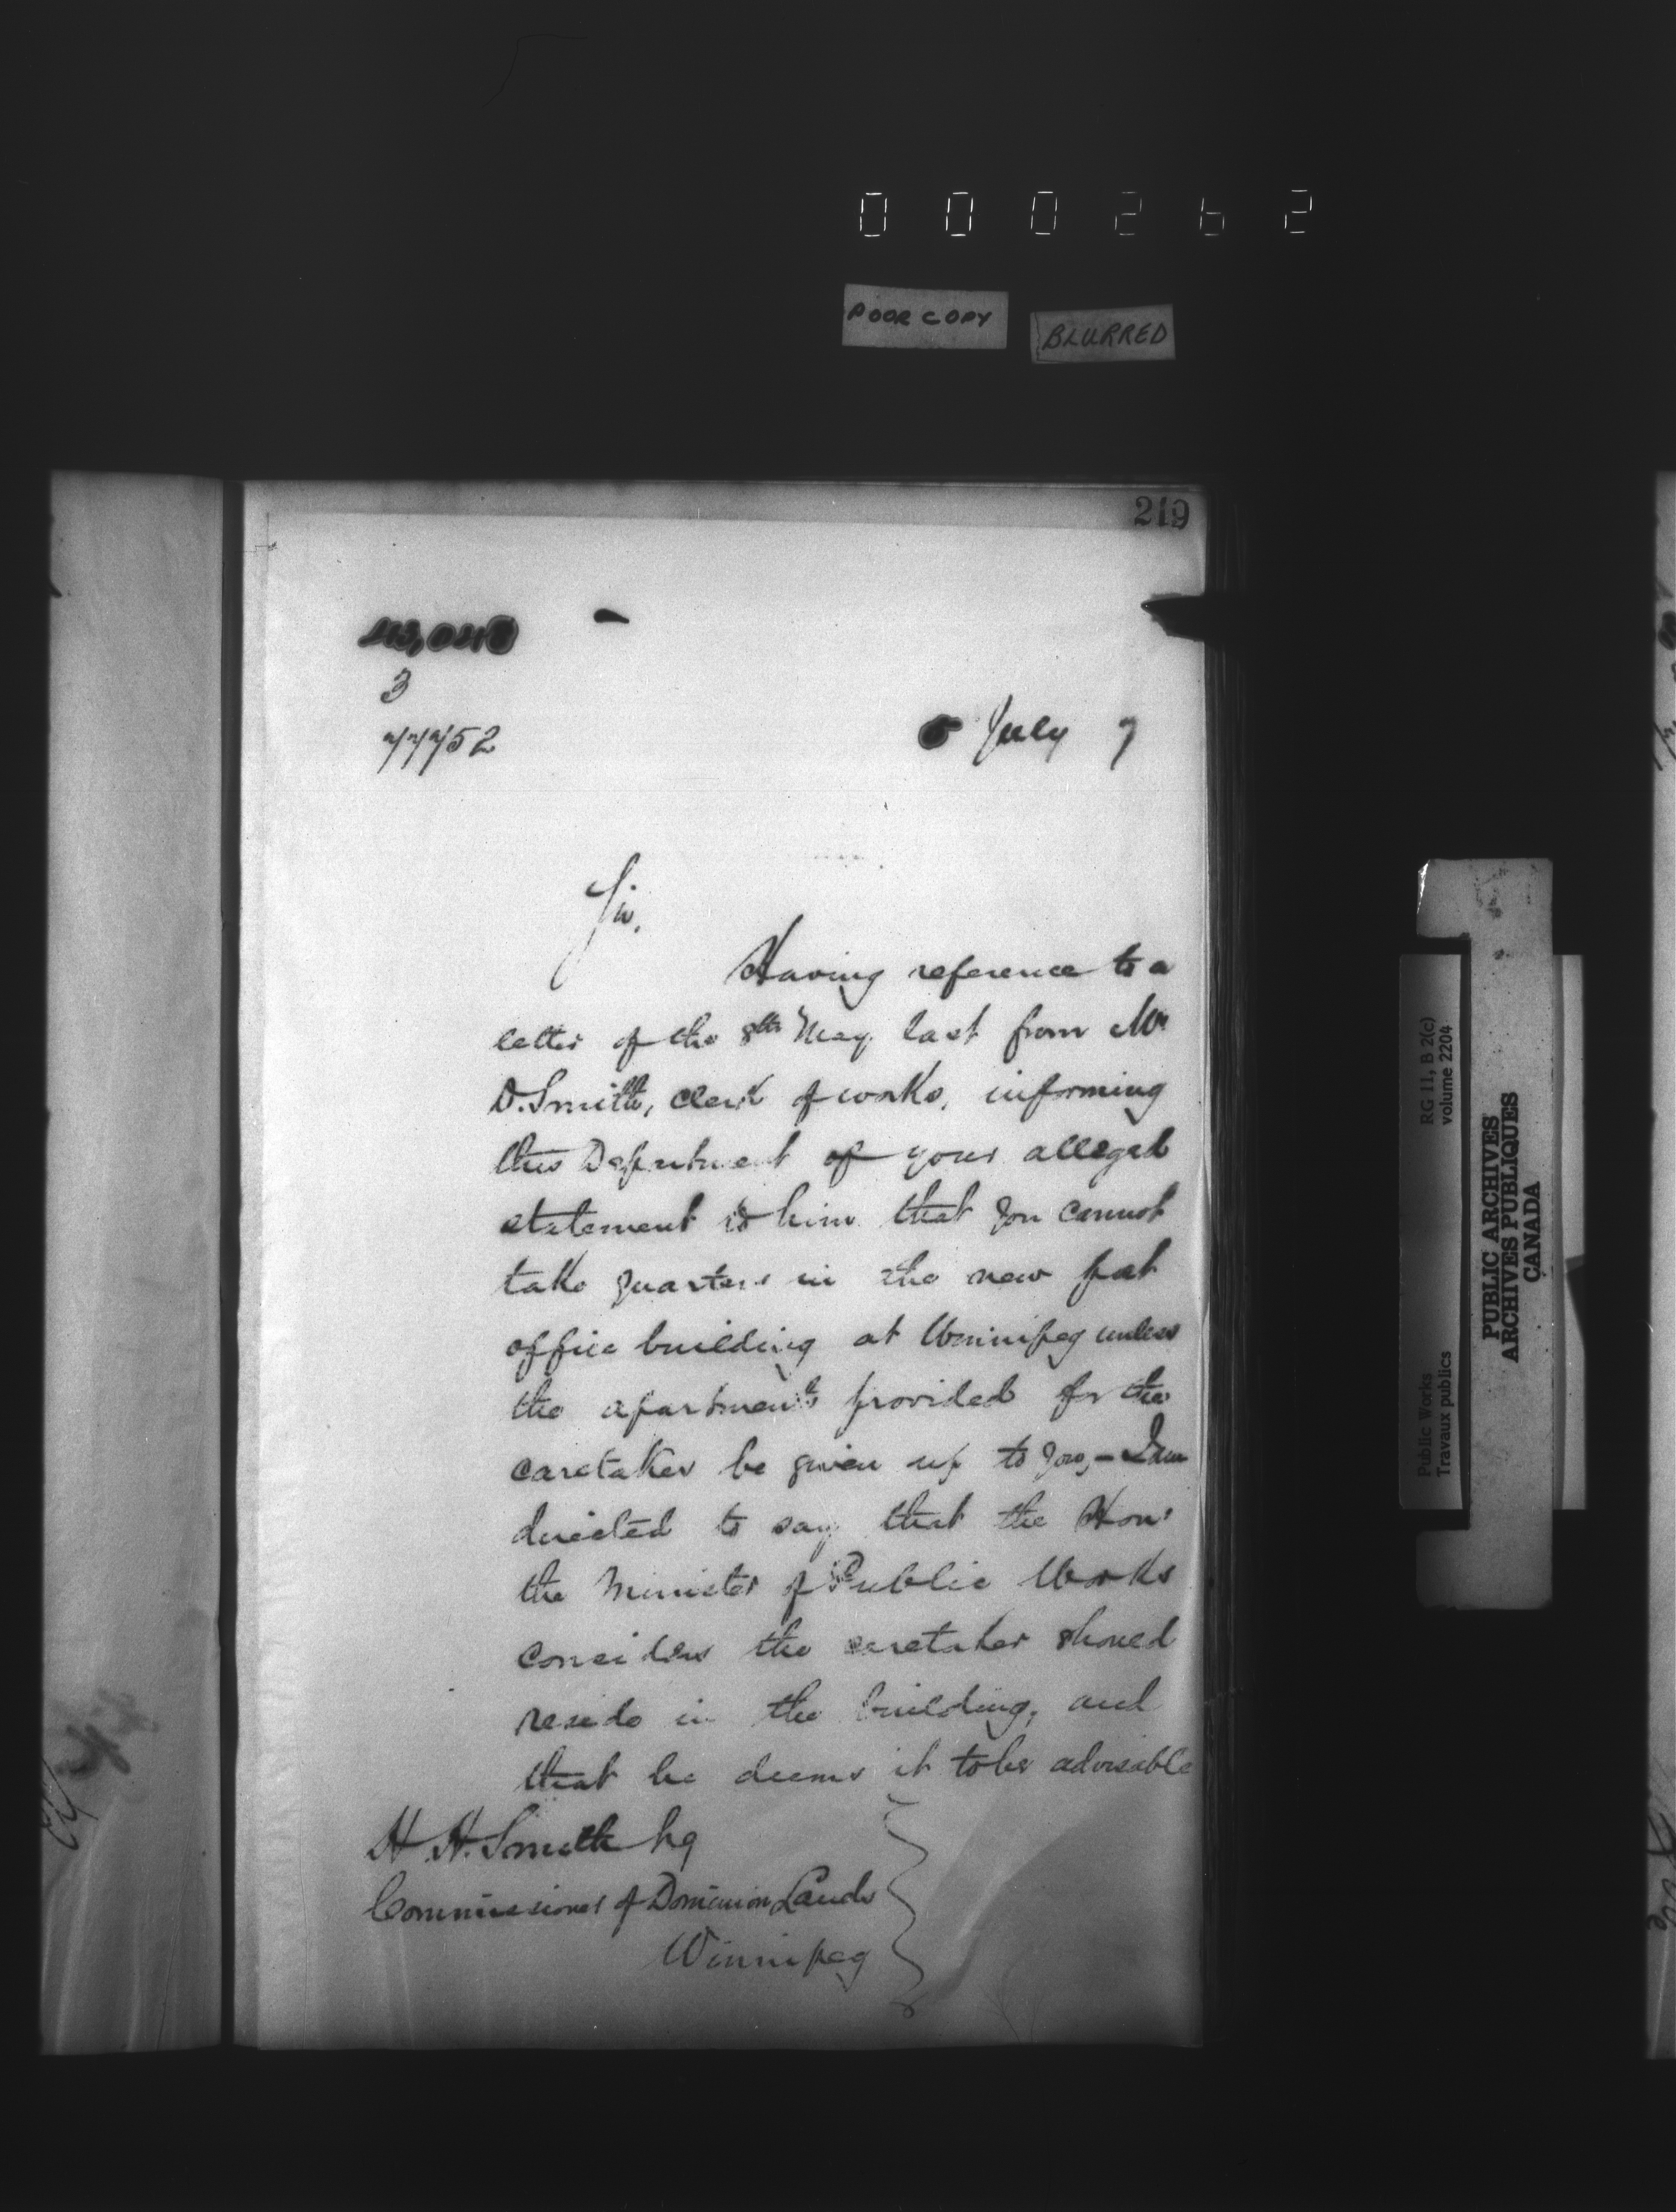 000262
POOR COPY
BLURRED
219
3
77752
5 July 7
Sir,
Having reference to a
letter of the 8th May last from Mr
D. Smith, clerk of works, informing
this Department of your alleged
statement to him that you cannot
take quarters in the new post
office building at Winnipeg unless
the apartments provided for the
caretaker be given up to you, – I am
directed to say that the Hon.
the Minister of Public Works
considers the caretaker should
reside in the building, and
that he deems it to be advisable
H. H. Smith Esq
Commissioner of Dominion Lands
Winnipeg
Public Works
Travaux publics
RG 11, B 2(c)
volume 2204
PUBLIC ARCHIVES
ARCHIVES PUBLIQUES
CANADA